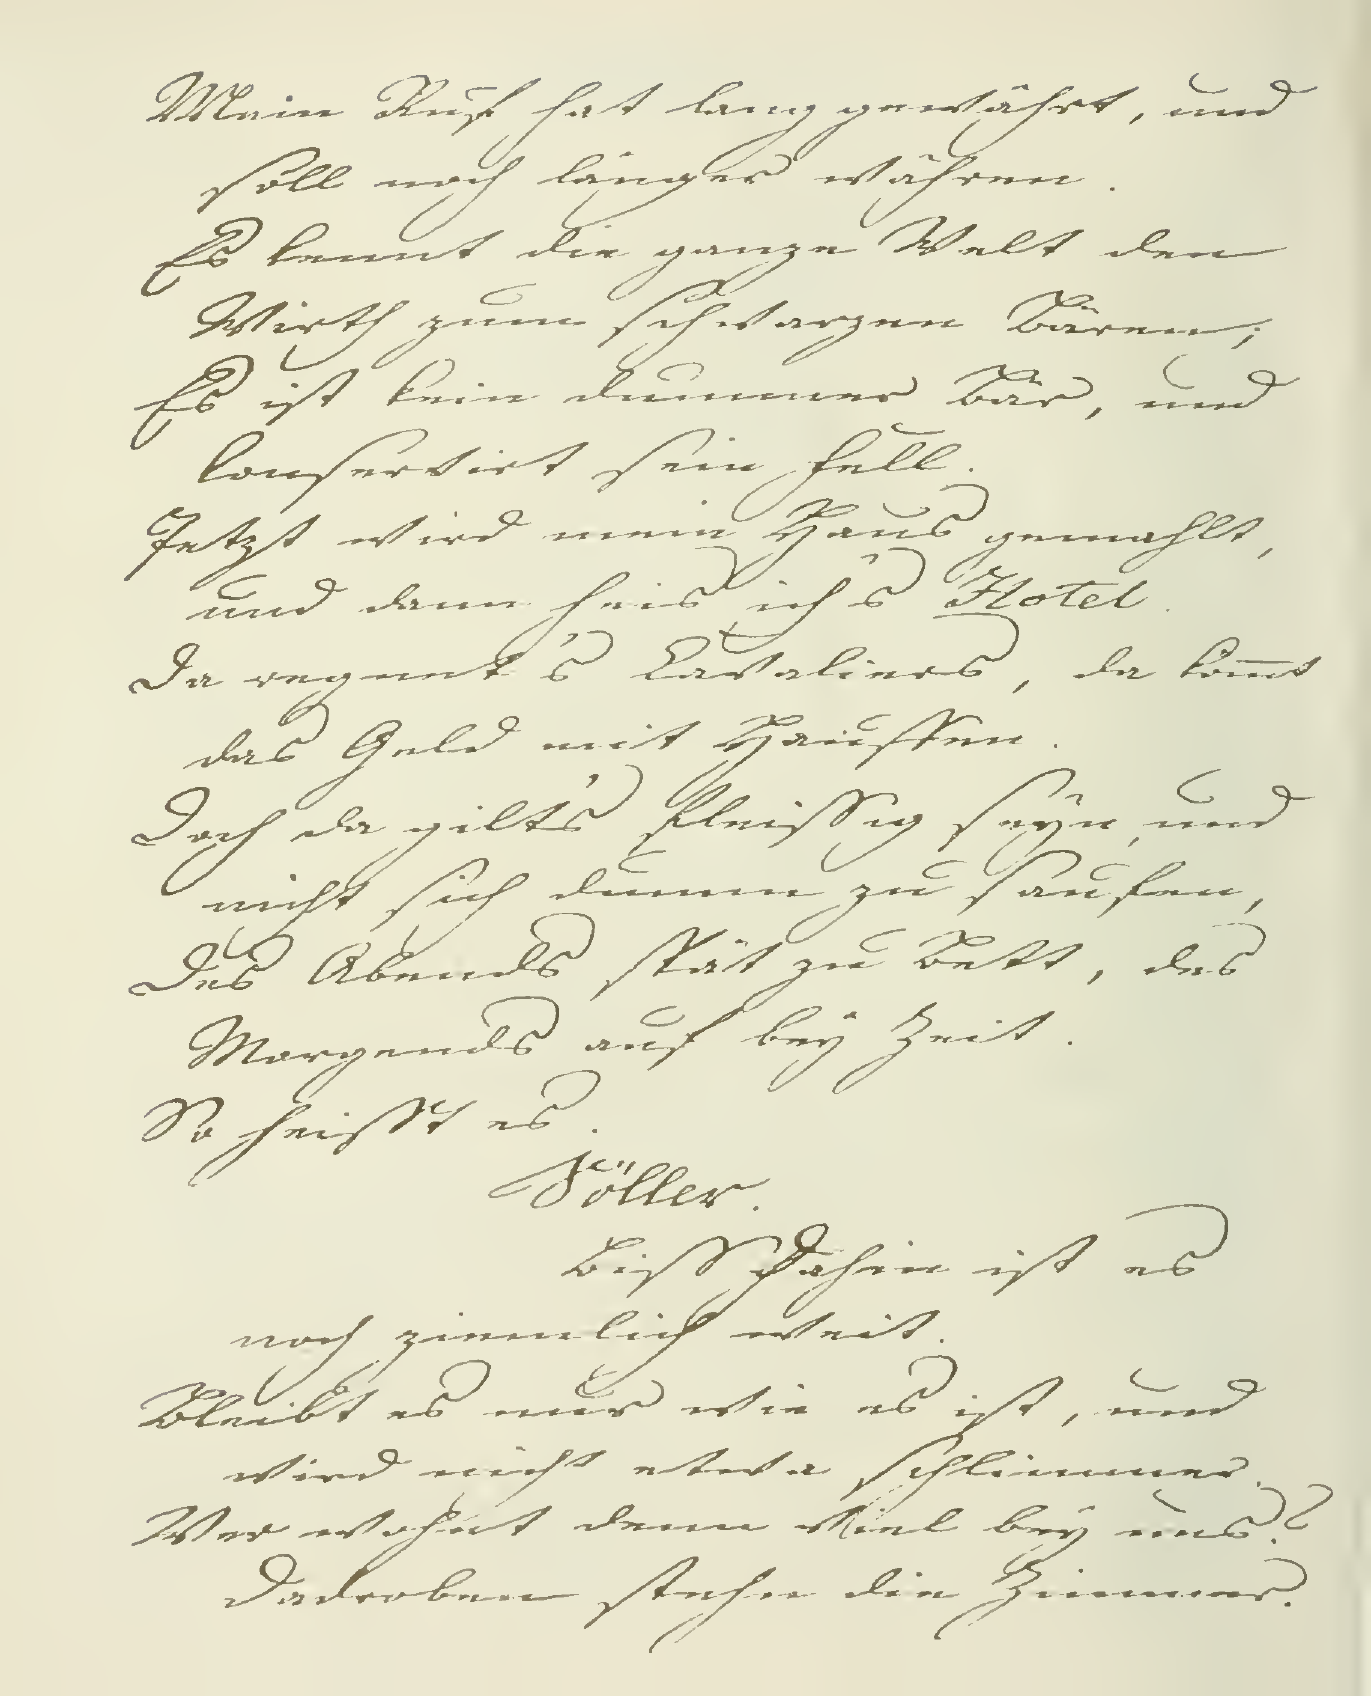 Mein Ruf hat lang gewährt, und
soll noch länger währen.
Es kennt die ganze Welt den
Wirth zum schwarzen Bären;
Es ist kein dummer Bär, und
konservirt sein Fell.
Jetzt wird mein Haus gemahlt,
und dann heis ich's Hotel.
Da regnet's Cavaliers, da kom̅t
das Geld mit Hauffen.
Doch da gilt's fleissig seyn, und
nicht sich dumm zu saufen,
Des Abends spät zu Bett, des
Morgends auf bey Zeit.
So heisst es.
Söller.
Biss dahin ist es
noch ziemlich weit.
Bleibt es nur wie es ist, und
wird nicht etwa schlimmer.
Wer wohnt denn viel bey uns?
Dadroben stehn die Zimmer.